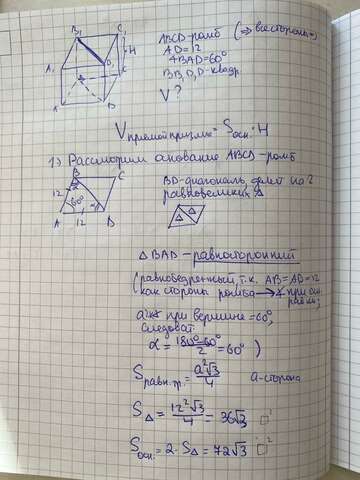 B₁ C₁
H
A₁ D₁
B C
A D
ABCD-ромб (⇒ все стороны =)
AD=12
∢BAD=60°
BB₁D₁D-квадр.
V?
Vпрямой призмы = Sосн. · H
1) Рассмотрим основание ABCD-ромб
B C
12
60°
A 12 D
BD-диагональ, делит на 2
равновеликих Δ
Δ Δ
Δ BAD - равносторонний
(равнобедренный, т.к. AB=AD=12
как стороны ромба → ∢ при осн.
равны;
при вершине =60°,
следоват.
α = 180°-60° / 2 = 60° )
Sравн.тр. = a²√3 / 4 a-сторона
SΔ = 12²√3 / 4 = 36√3
Sосн. = 2 · SΔ = 72√3 □²